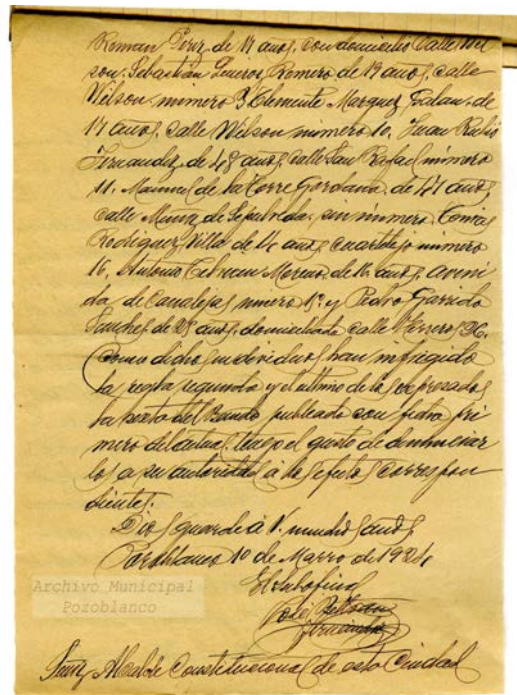 Roman Perez de 17 años, con domicilio Calle Wil
son. Sebastián Romero de 19 años, calle
Wilson numero 3. Clemente Marquez Galan de
17 años, calle Wilson numero 10, Juan Rubio
Fernandez de 48 años, calle San Rafael numero
11. Manuel de la Torre Gordana de 41 años
calle Muñoz de Sepulveda sin numero. Tomas
Rodriguez Villa de años, numero
16, Antonio Moreno de años, aveni
da de Canalejas y Pedro Garrido
Sanchez de 28 años, domiciliado calle 26.
Como dichos individuos han infrigido
la regla segunda y el ultimo de los expresados
la sexta del Bando publicado con fecha pri
mero del actual, tengo el gusto de denunciar
los a su autoridad á los efectos correspon
dientes.
Dios guarde á V. muchos años
Pozoblanco 10 de Marzo de 1924
José
Fernandez
Alcalde Constitucional de esta Ciudad
Archivo Municipal
Pozoblanco